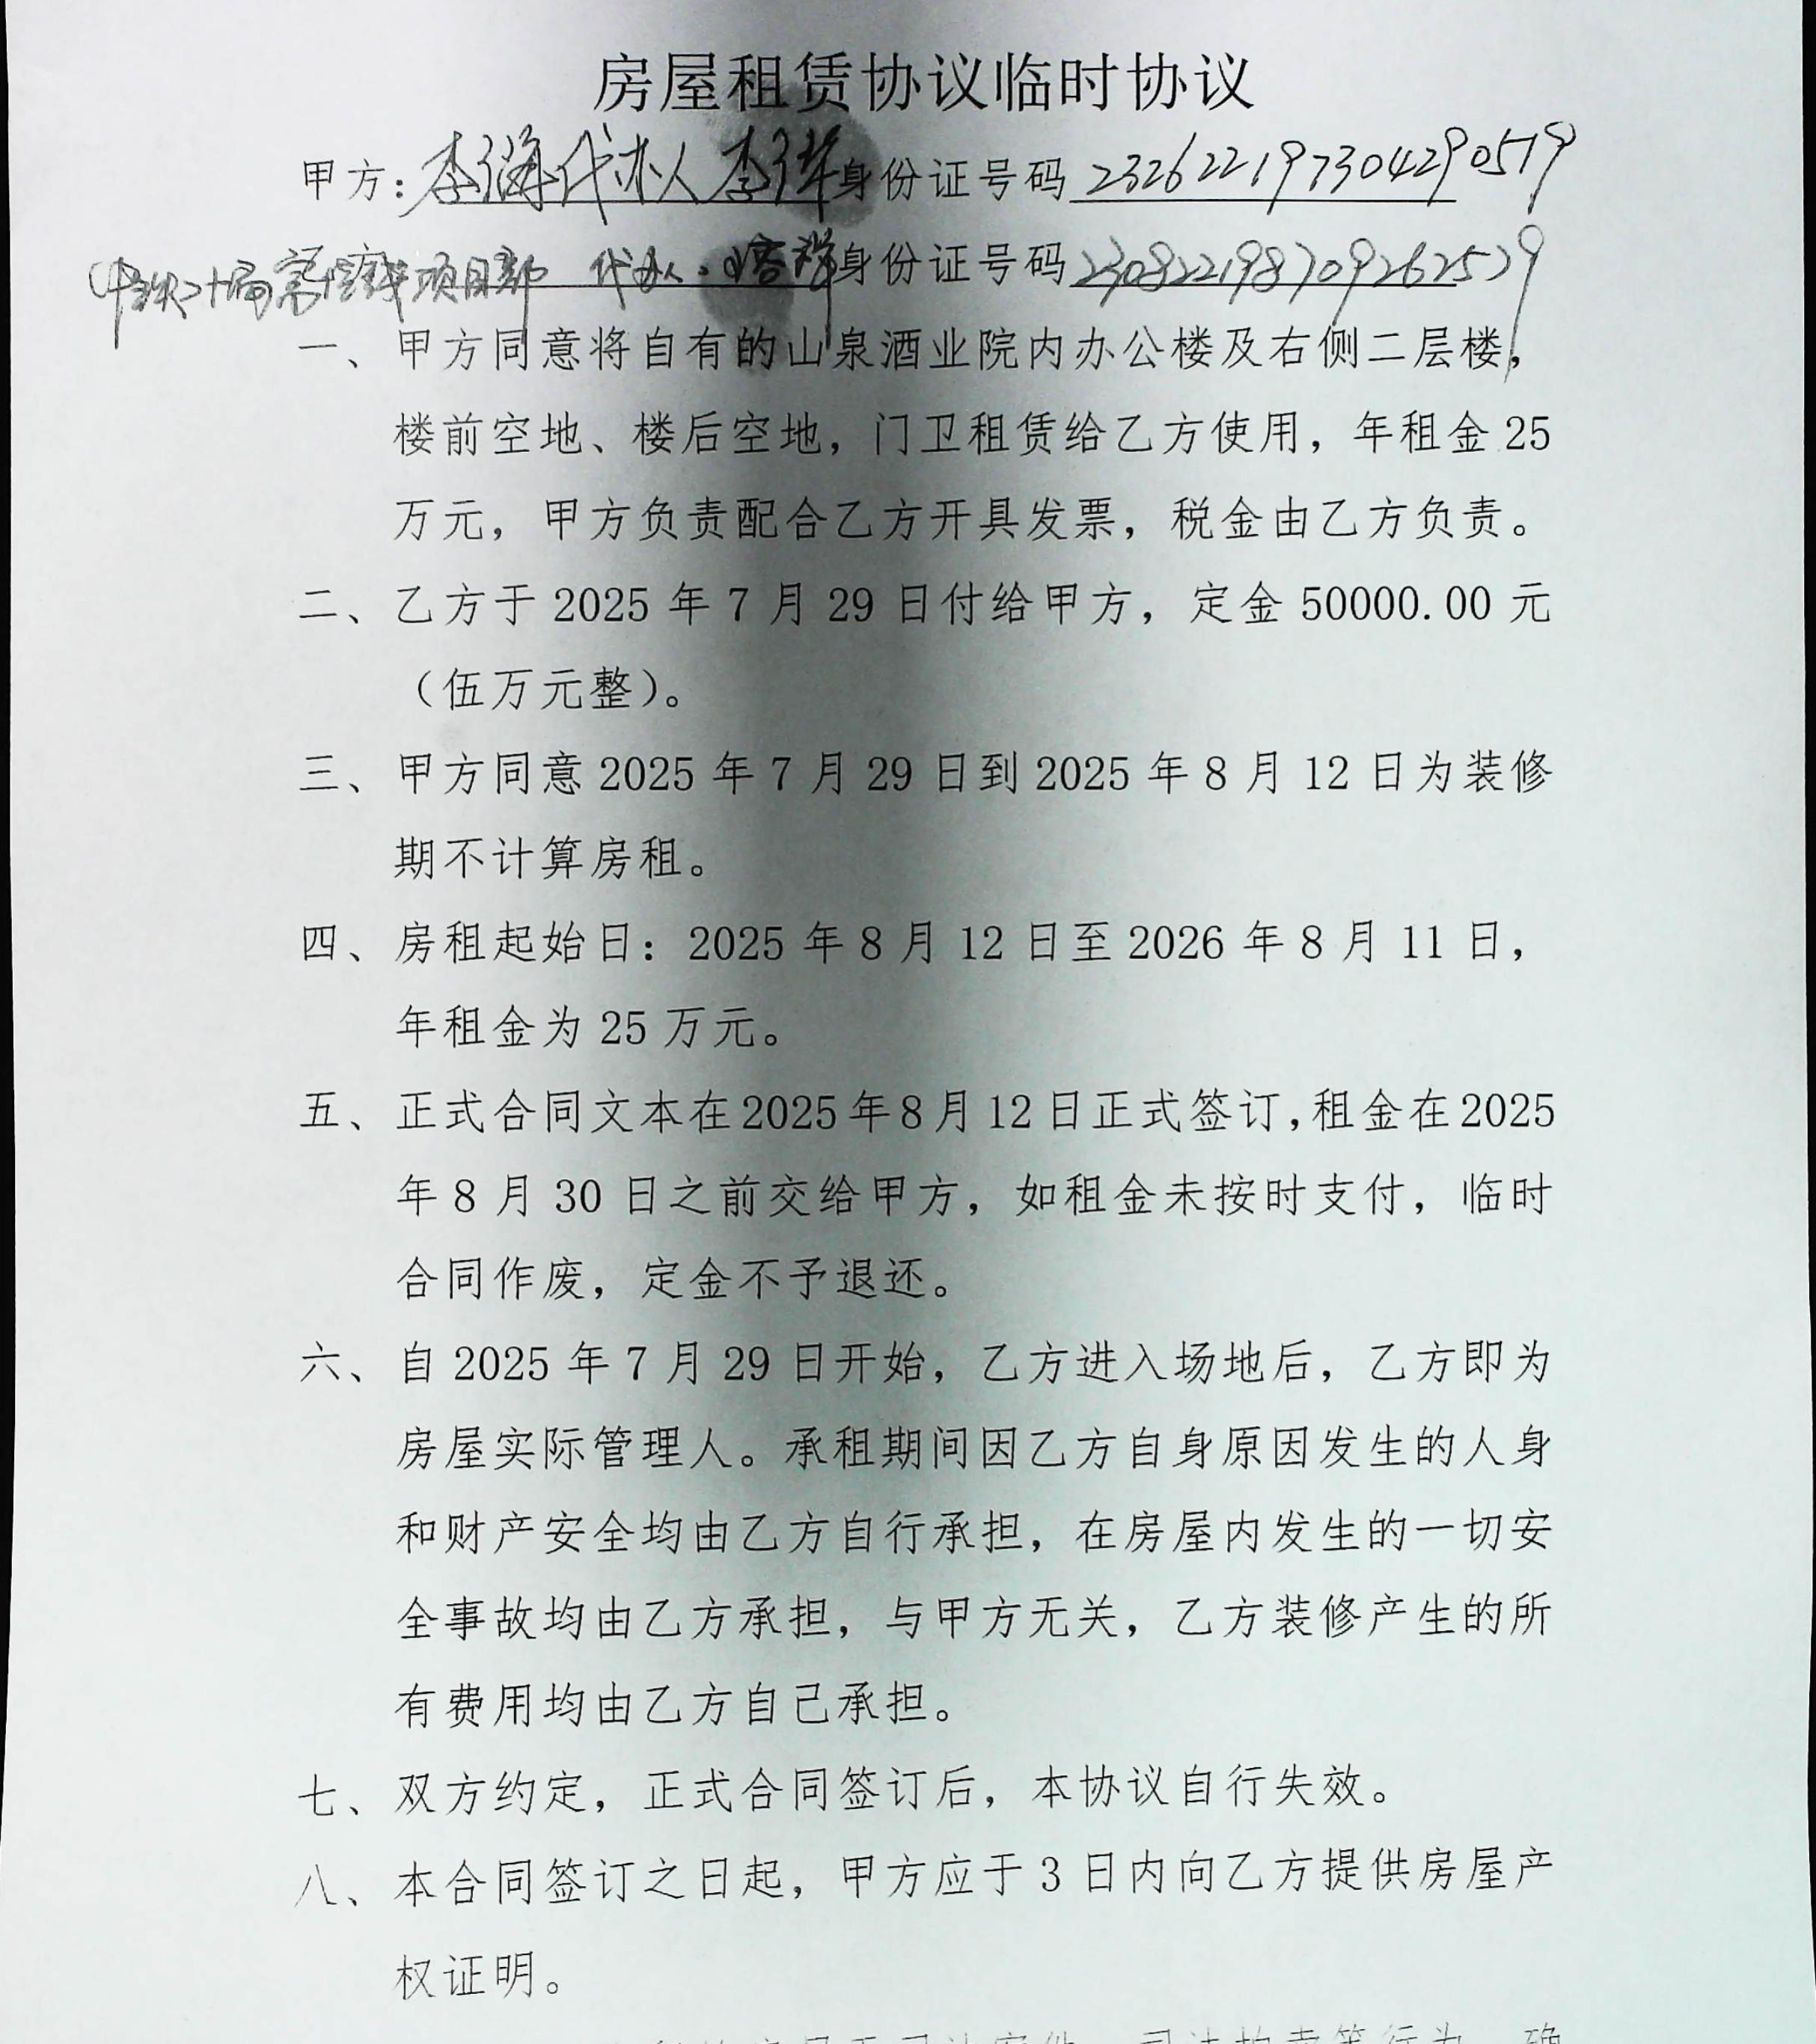 房屋租赁协议临时协议
甲方：李海代办人李身份证号码 232622197304290519
中铁二十局项目部 代办人：身份证号码 230822198709262529
一、甲方同意将自有的山泉酒业院内办公楼及右侧二层楼，
楼前空地、楼后空地，门卫租赁给乙方使用，年租金 25
万元，甲方负责配合乙方开具发票，税金由乙方负责。
二、乙方于 2025 年 7 月 29 日付给甲方，定金 50000.00 元
（伍万元整）。
三、甲方同意 2025 年 7 月 29 日到 2025 年 8 月 12 日为装修
期不计算房租。
四、房租起始日：2025 年 8 月 12 日至 2026 年 8 月 11 日，
年租金为 25 万元。
五、正式合同文本在2025年8月12日正式签订,租金在2025
年 8 月 30 日之前交给甲方，如租金未按时支付，临时
合同作废，定金不予退还。
六、自 2025 年 7 月 29 日开始，乙方进入场地后，乙方即为
房屋实际管理人。承租期间因乙方自身原因发生的人身
和财产安全均由乙方自行承担，在房屋内发生的一切安
全事故均由乙方承担，与甲方无关，乙方装修产生的所
有费用均由乙方自己承担。
七、双方约定，正式合同签订后，本协议自行失效。
八、本合同签订之日起，甲方应于 3 日内向乙方提供房屋产
权证明。